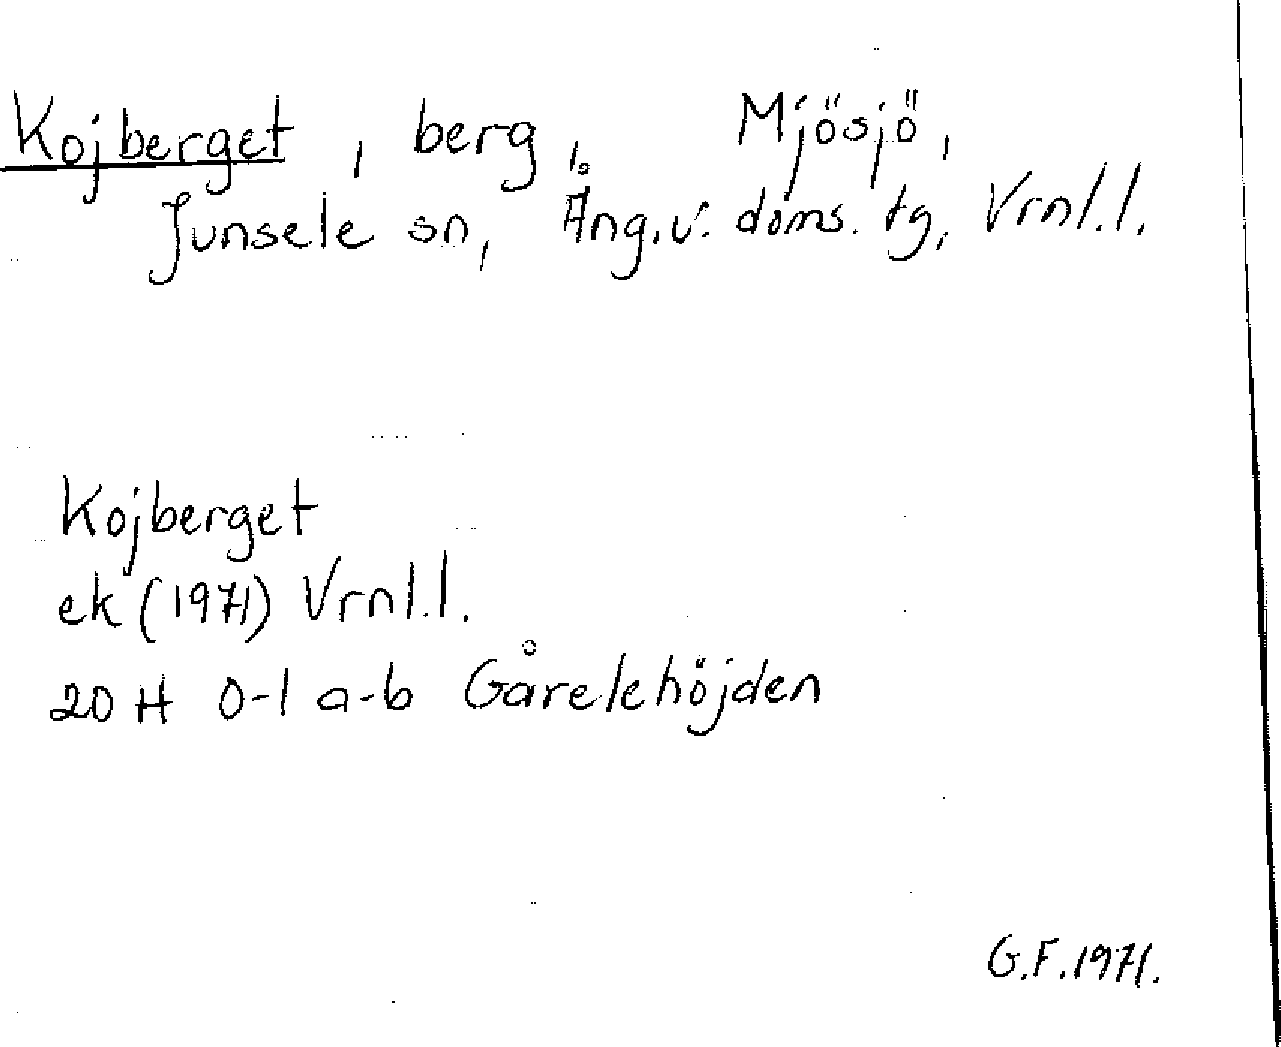 Kojberget, berg, Mjösjö,
Junsele sn, Ång.v. doms. tg, Vrnl.l.
Kojberget
ek (1971) Vrnl.l.
20 H 0-1 a-b Gårelehöjden
G.F.1971.